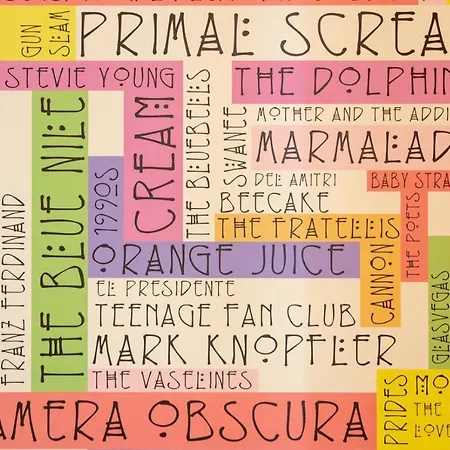 GUN
SLAM
PRIMAL SCREA
STEVIE YOUNG
THE DOLPHIN
THE BLUE NILE
CREAM
THE BLUEBELLS
SWANEE
MOTHER AND THE ADDI
MARMALAD
DEL AMITRI
BABY STRA
BEECAKE
THE FRATELLIS
THE POETS
1990S
ORANGE JUICE
CANNON
FRANZ FERDINAND
EL PRESIDENTE
GLASVEGAS
TEENAGE FAN CLUB
MARK KNOPFLER
THE VASELINES
AMERA OBSCURA
PRIDES
MO
THE
LOVE